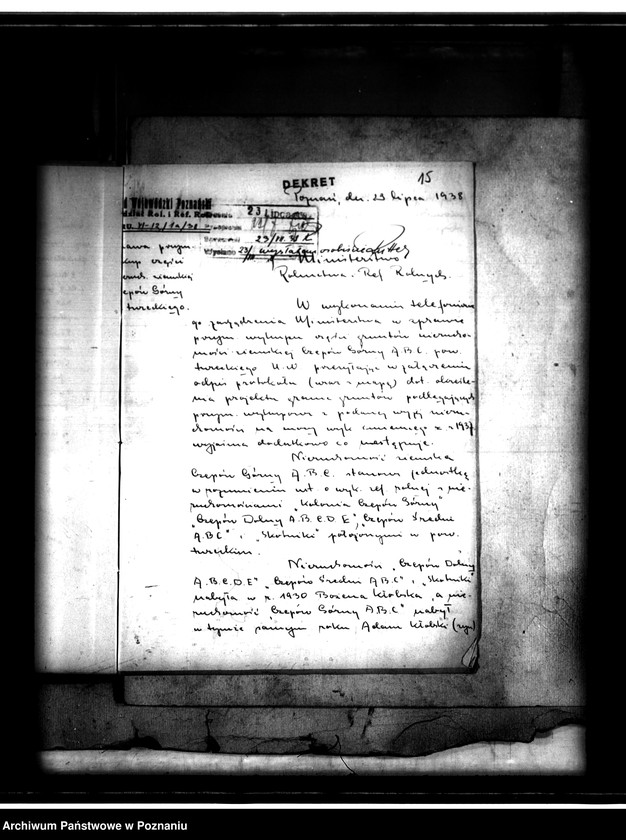 DEKRET
15
Poznań, dn. 23 lipca 1938
d Wojewódzki Poznański
dział Rol. i Ref. Rolnych
23 Lipca
23/VII 38
Wysłano 23/
awa przym.
kup części
ziemskiej
epów Górny
tureckiego.
Ministerstwo
Rolnictwa i Ref. Rolnych.
W wykonaniu telefoniczne
go zarządzenia Ministerstwa w sprawie
przym. wykupu części gruntów nierucho-
mości ziemskiej Czepów Górny A.B.C. pow.
tureckiego U.W. przesyłając w załączeniu
odpis protokołu (wraz z mapą) dot. określe-
nia projektu granic gruntów podlegających
przym. wykupowi z podanej wyżej nieru-
chomości na mocy wyk. imiennego z r. 1937
wyjaśnia dodatkowo co następuje.
Nieruchomość ziemska
Czepów Górny A.B.C. stanowi jednostkę
w rozumieniu ust. o wyk. ref. rolnej z nie-
ruchomościami "Kolonia Czepów Górny"
"Czepów Dolny A.B.C.D.E", "Czepów Średni
A.B.C" i "Skotniki" położonymi w pow.
tureckim.
Nieruchomości "Czepów Dolny
A.B.C.D.E" "Czepów Średni A.B.C" i "Skotniki"
nabyła w r. 1930 Bożena Kłobska, a nie-
ruchomość Czepów Górny A.B.C" nabył
w tymże samym roku Adam Kłobski (syn)
Archiwum Państwowe w Poznaniu